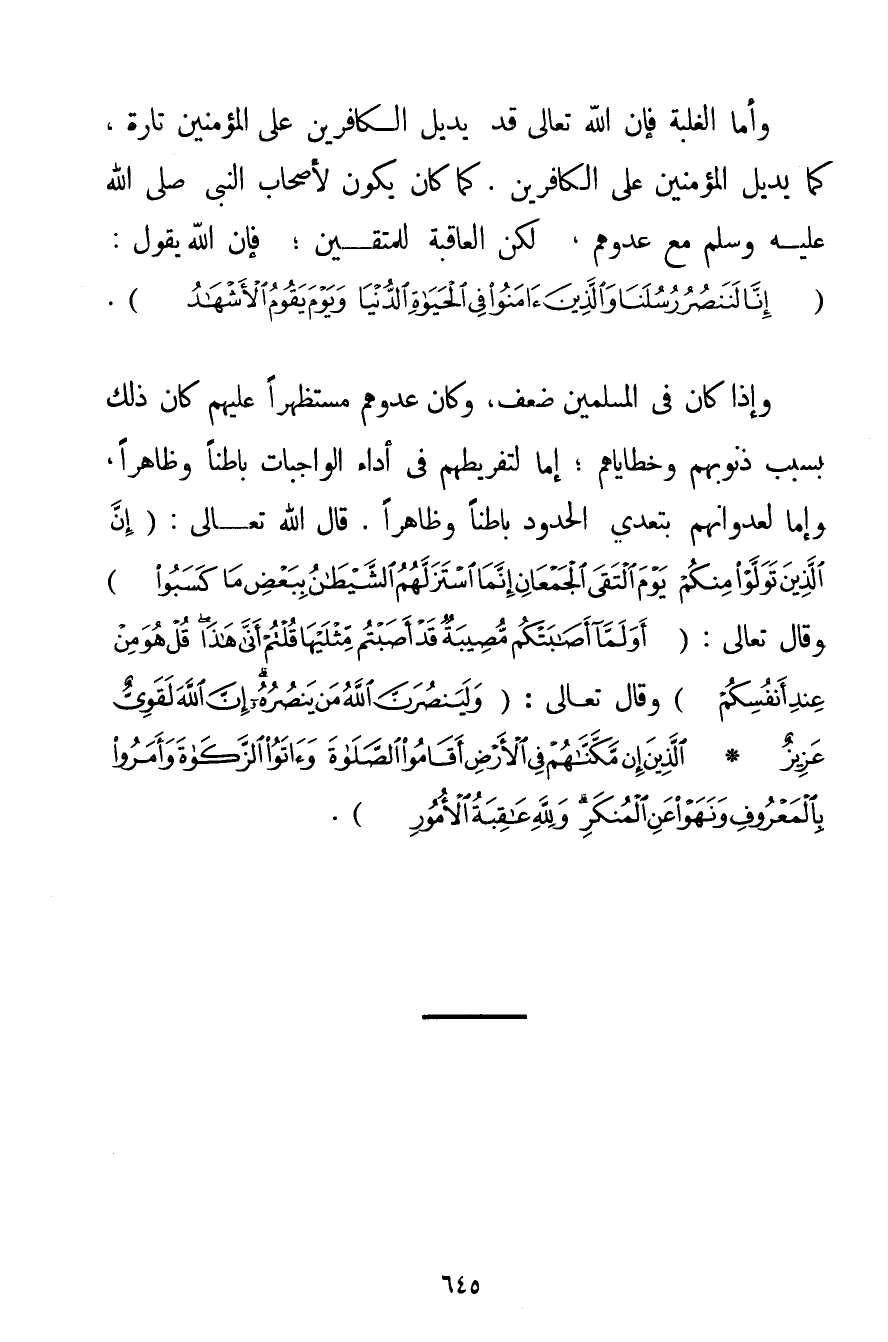 وأما الغلبة فإن الله تعالى قد يديل الكافرين على المؤمنين تارة ،
كما يديل المؤمنين على الكافرين . كما كان يكون لأصحاب النبي صلى الله
عليه وسلم مع عدوهم ، لكن العاقبة للمتقين ؛ فإن الله يقول :
( إِنَّا لَنَنصُرُ رُسُلَنَا وَٱلَّذِينَ ءَامَنُوا۟ فِى ٱلْحَيَوٰةِ ٱلدُّنْيَا وَيَوْمَ يَقُومُ ٱلْأَشْهَٰدُ ) .
وإذا كان فى المسلمين ضعف، وكان عدوهم مستظهراً عليهم كان ذلك
بسبب ذنوبهم وخطاياهم ؛ إما لتفريطهم فى أداء الواجبات باطناً وظاهراً،
وإما لعدوانهم بتعدي الحدود باطناً وظاهراً . قال الله تعالى : ( إِنَّ
ٱلَّذِينَ تَوَلَّوْا۟ مِنكُمْ يَوْمَ ٱلْتَقَى ٱلْجَمْعَانِ إِنَّمَا ٱسْتَزَلَّهُمُ ٱلشَّيْطَٰنُ بِبَعْضِ مَا كَسَبُوا۟ )
وقال تعالى : ( أَوَلَمَّآ أَصَٰبَتْكُم مُّصِيبَةٌ قَدْ أَصَبْتُم مِّثْلَيْهَا قُلْتُمْ أَنَّىٰ هَٰذَا ۖ قُلْ هُوَ مِنْ
عِندِ أَنفُسِكُمْ ) وقال تعالى : ( وَلَيَنصُرَنَّ ٱللَّهُ مَن يَنصُرُهُۥٓ ۗ إِنَّ ٱللَّهَ لَقَوِىٌّ
عَزِيزٌ * ٱلَّذِينَ إِن مَّكَّنَّٰهُمْ فِى ٱلْأَرْضِ أَقَامُوا۟ ٱلصَّلَوٰةَ وَءَاتَوُا۟ ٱلزَّكَوٰةَ وَأَمَرُوا۟
بِٱلْمَعْرُوفِ وَنَهَوْا۟ عَنِ ٱلْمُنكَرِ ۗ وَلِلَّهِ عَٰقِبَةُ ٱلْأُمُورِ ) .
٦٤٥